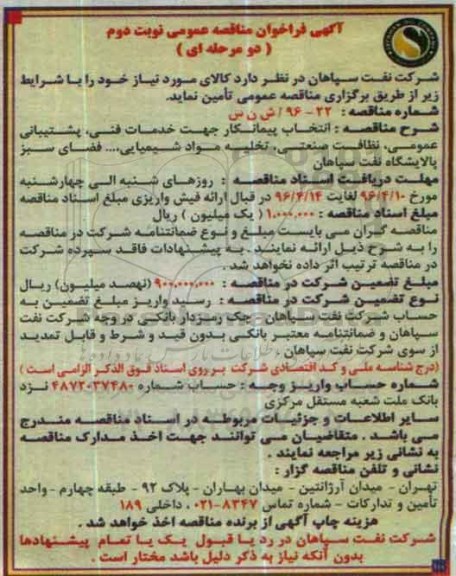 آگهی فراخوان مناقصه عمومی نوبت دوم
( دو مرحله ای )
شرکت نفت سپاهان در نظر دارد کالای مورد نیاز خود را با شرایط
زیر از طریق برگزاری مناقصه عمومی تأمین نماید.
شماره مناقصه : ۲۲ - ۹۶ / ش ن س
شرح مناقصه : انتخاب پیمانکار جهت خدمات فنی، پشتیبانی
عمومی، نظافت صنعتی، تخلیه مواد شیمیایی،... فضای سبز
پالایشگاه نفت سپاهان
مهلت دریافت اسناد مناقصه : روزهای شنبه الی چهارشنبه
مورخ ۹۶/۴/۱۰ لغایت ۹۶/۴/۱۴ در قبال ارائه فیش واریزی مبلغ اسناد مناقصه
مبلغ اسناد مناقصه : ۱.۰۰۰.۰۰۰ ( یک میلیون ) ریال
مناقصه گران می بایست مبلغ و نوع ضمانتنامه شرکت در مناقصه
را به شرح ذیل ارائه نمایند . به پیشنهادات فاقد سپرده شرکت
در مناقصه ترتیب اثر داده نخواهد شد .
مبلغ تضمین شرکت در مناقصه : ۹۰۰.۰۰۰.۰۰۰ (نهصد میلیون) ریال
نوع تضمین شرکت در مناقصه : رسید واریز مبلغ تضمین به
حساب شرکت نفت سپاهان - چک رمزدار بانکی در وجه شرکت نفت
سپاهان و ضمانتنامه معتبر بانکی بدون قید و شرط و قابل تمدید
از سوی شرکت نفت سپاهان .
(درج شناسه ملی و کد اقتصادی شرکت بر روی اسناد فوق الذکر الزامی است )
شماره حساب واریز وجه : حساب شماره ۴۸۷۲۰۳۷۴۸۰ نزد
بانک ملت شعبه مستقل مرکزی
سایر اطلاعات و جزئیات مربوطه در اسناد مناقصه مندرج
می باشد . متقاضیان می توانند جهت اخذ مدارک مناقصه
به نشانی زیر مراجعه نمایند .
نشانی و تلفن مناقصه گزار :
تهران - میدان آرژانتین - میدان بهاران - پلاک ۹۲ - طبقه چهارم - واحد
تأمین و تدارکات - شماره تماس ۸۳۴۷-۰۲۱ ، داخلی ۱۸۹
هزینه چاپ آگهی از برنده مناقصه اخذ خواهد شد .
شرکت نفت سپاهان در رد یا قبول یک یا تمام پیشنهادها
بدون آنکه نیاز به ذکر دلیل باشد مختار است .